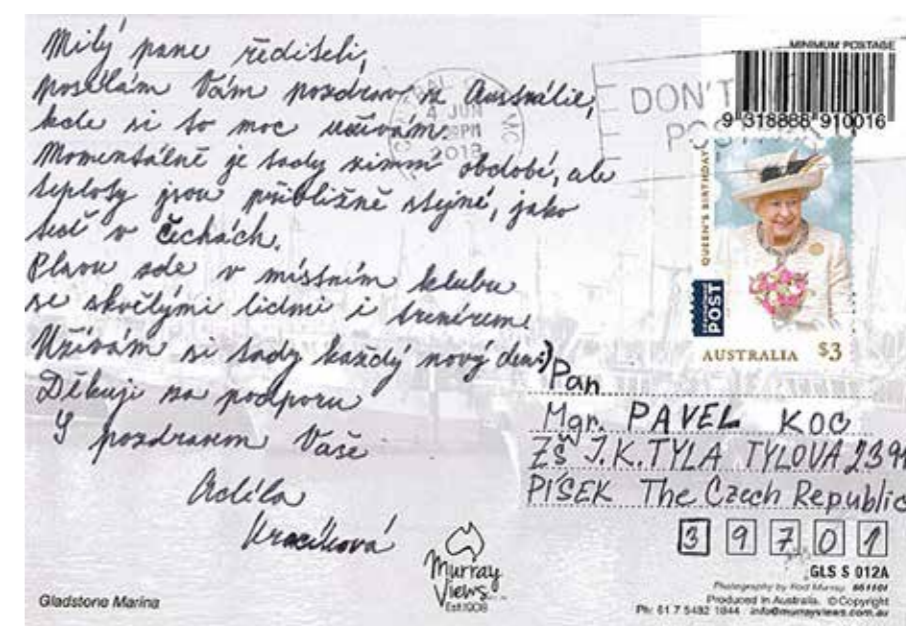 Milý pane řediteli,
posílám Vám pozdrav z Austrálie,
kde si to moc užívám.
Momentálně je tady zimní období, ale
teploty jsou přibližně stejné, jako
teď v Čechách.
Plavu zde v místním klubu
se skvělými lidmi i trenérem.
Užívám si tady každý nový den:)
Děkuji za podporu
S pozdravem Vaše
Adéla
Kracíková
MINIMUM POSTAGE
9 318888 910016
4 JUN
2018
DON'T
QUEEN'S BIRTHDAY
POST
AUSTRALIA $3
Pan
Mgr. PAVEL KOC
ZŠ J.K.TYLA TYLOVA 2391
PÍSEK The Czech Republic
3 9 7 0 1
GLS S 012A
Photography by Rod Murray
Produced in Australia. © Copyright
Ph: 61 7 5482 1844 info@murrayviews.com.au
Murray
Views
Est.1908
Gladstone Marina